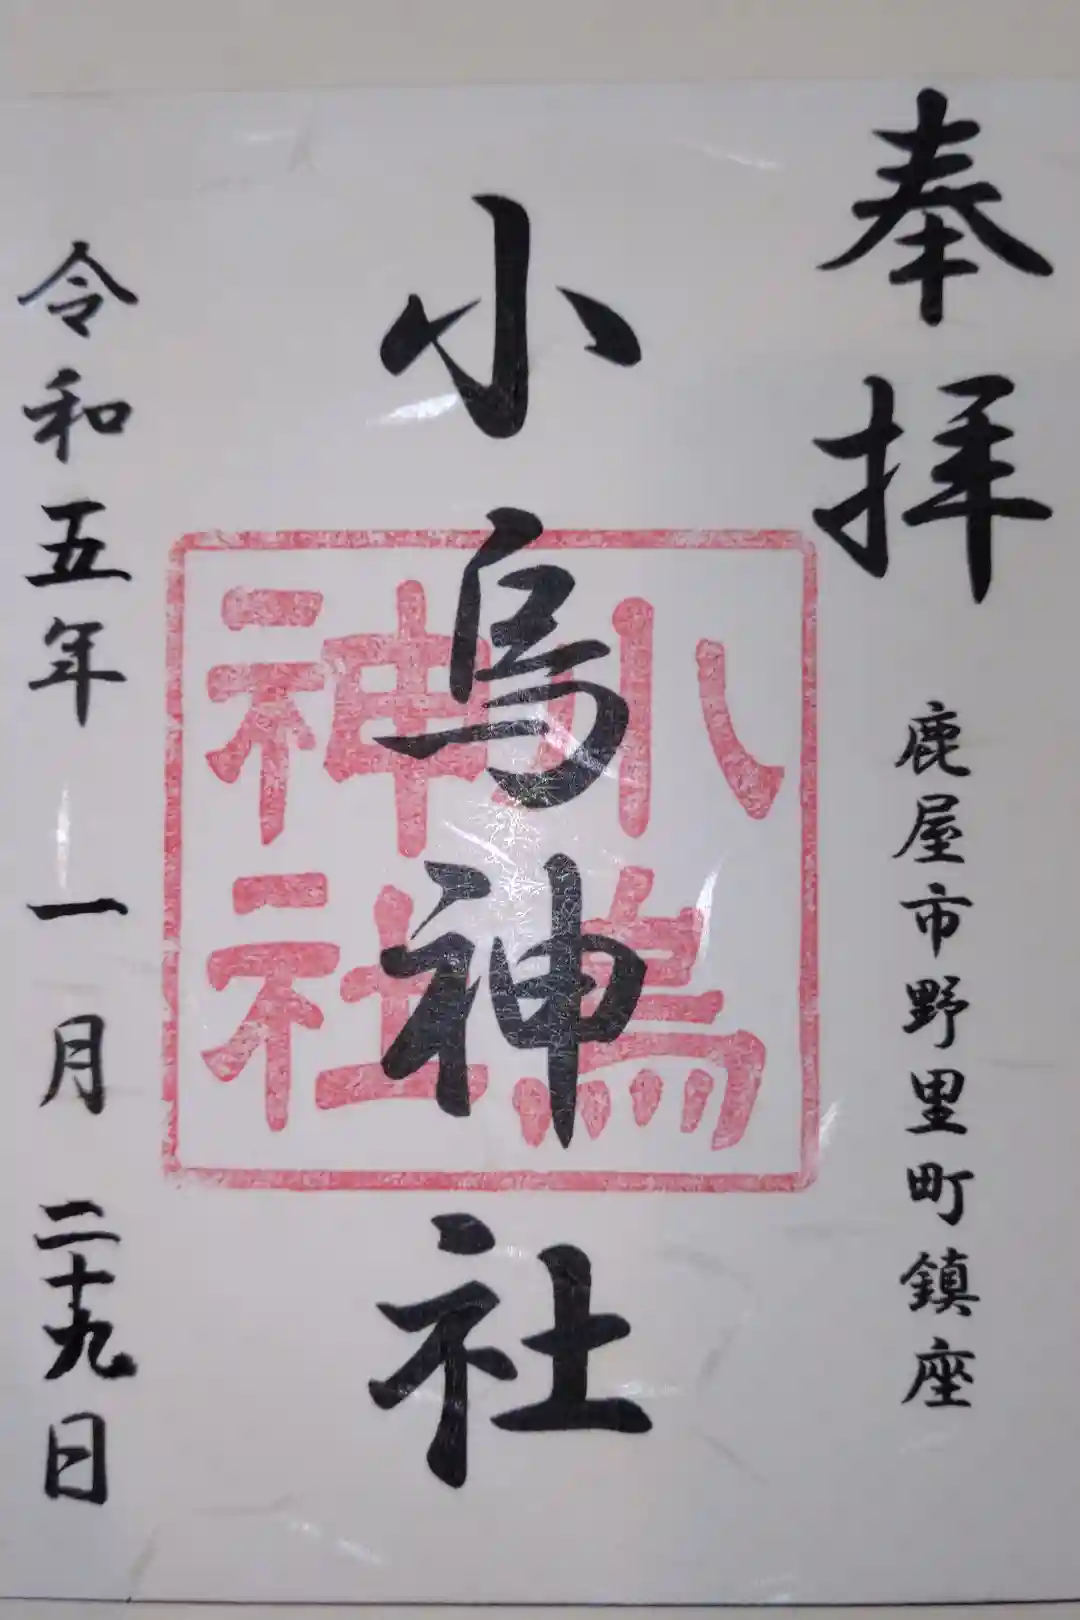 奉拝
鹿屋市野里町鎮座
小烏神社
小烏
神社
令和五年 一月 二十九日